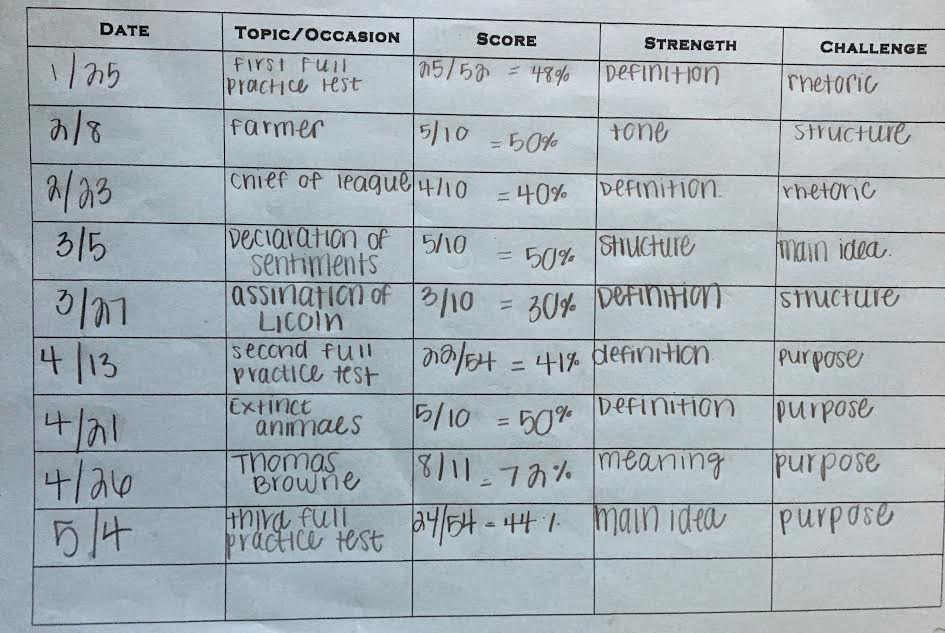 DATE TOPIC/OCCASION SCORE STRENGTH CHALLENGE
1/25 first full practice test 25/52 = 48% Definition rhetoric
2/8 farmer 5/10 = 50% tone structure
2/23 chief of league 4/10 = 40% Definition. rhetoric
3/5 Declaration of sentiments 5/10 = 50% structure main idea.
3/27 assination of Licoln 3/10 = 30% Definition structure
4/13 second full practice test 22/54 = 41% definition purpose
4/21 Extinct animaes 5/10 = 50% Definition purpose
4/26 Thomas Browne 8/11 = 72% meaning purpose
5/4 third full practice test 24/54 = 44% main idea purpose